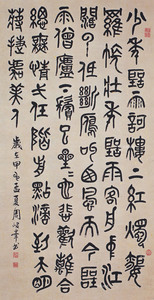 少年聽雨歌樓上紅燭昏
羅帳壯年聽雨客舟中江
闊雲低斷雁叫西風而今聽
雨僧廬下鬢已星星也悲歡離合
總無情一任階前點滴到天明
蔣捷虞美人
歲在甲午孟夏周書